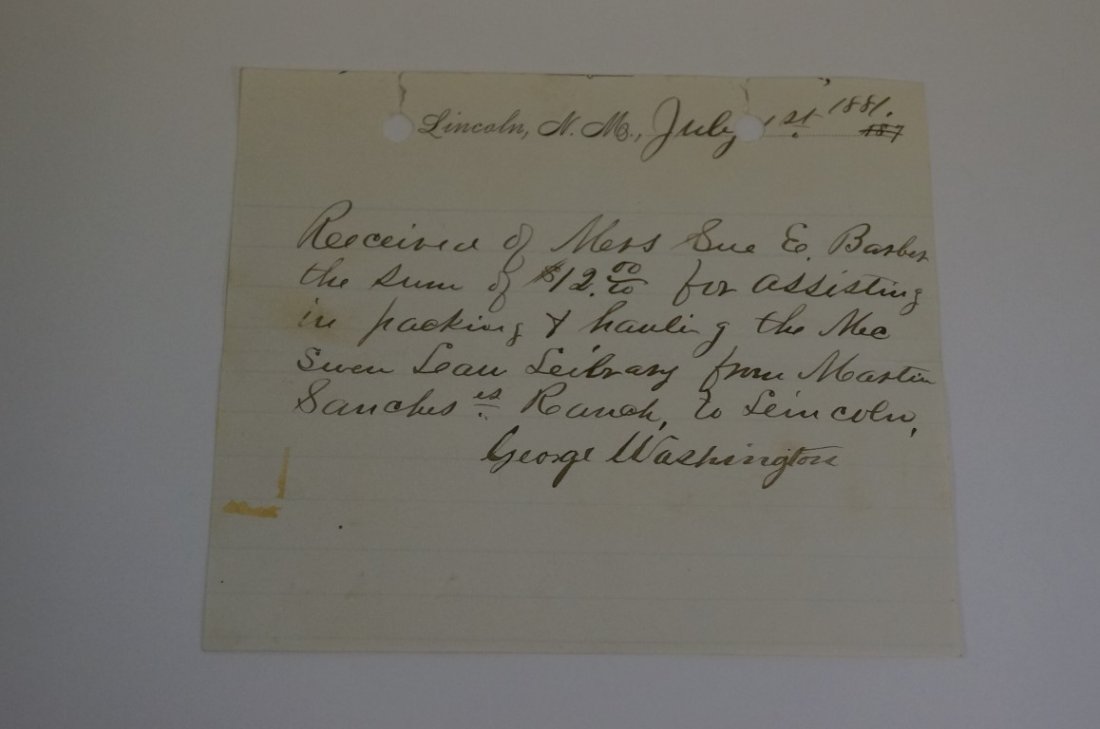 Lincoln, N. M., July 1st 1881.
187
Received of Mrs Sue E. Barber
the sum of $12.00 for assisting
in packing & hauling the Mec
Swen Leaw Leibrary from Martin
Sanches es Ranch, to Leincoln,
George Washington